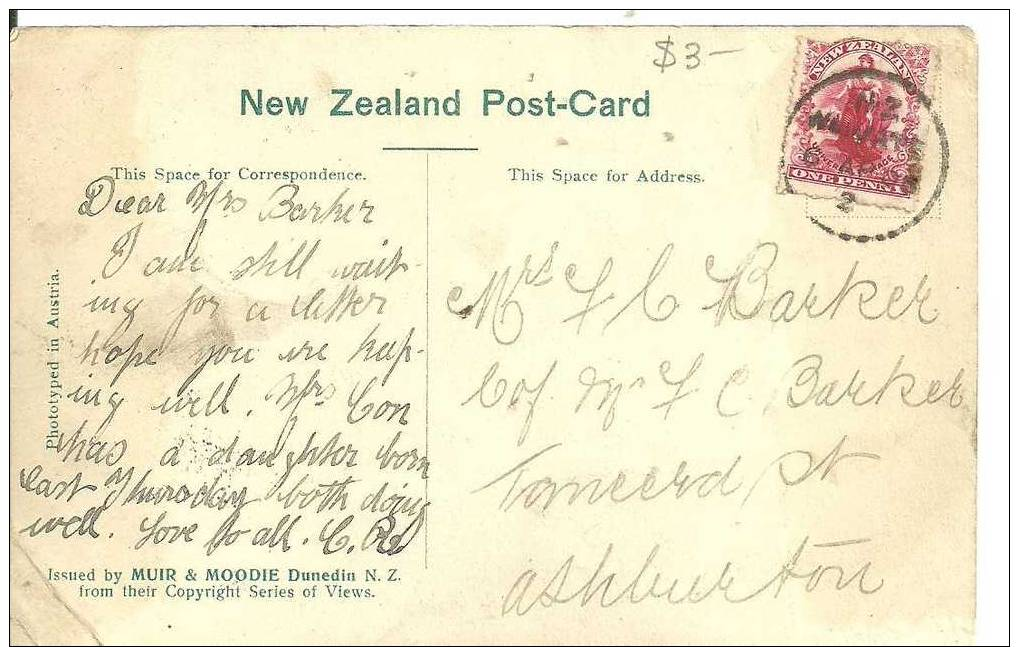 $3-
New Zealand Post-Card
NEW ZEALAND
UNIVERSAL POSTAGE
ONE PENNY
N.Z
2
This Space for Correspondence.
Dear Mrs Barker
I am still wait-
ing for a letter
hope you are keep-
ing well. Mrs Con
has a daughter born
last Thursday both doing
well. Love to all. C.
Phototyped in Austria.
Issued by MUIR & MOODIE Dunedin N. Z.
from their Copyright Series of Views.
This Space for Address.
Mrs F C Barker
C/of Mr F C Barker
St
Ashburton